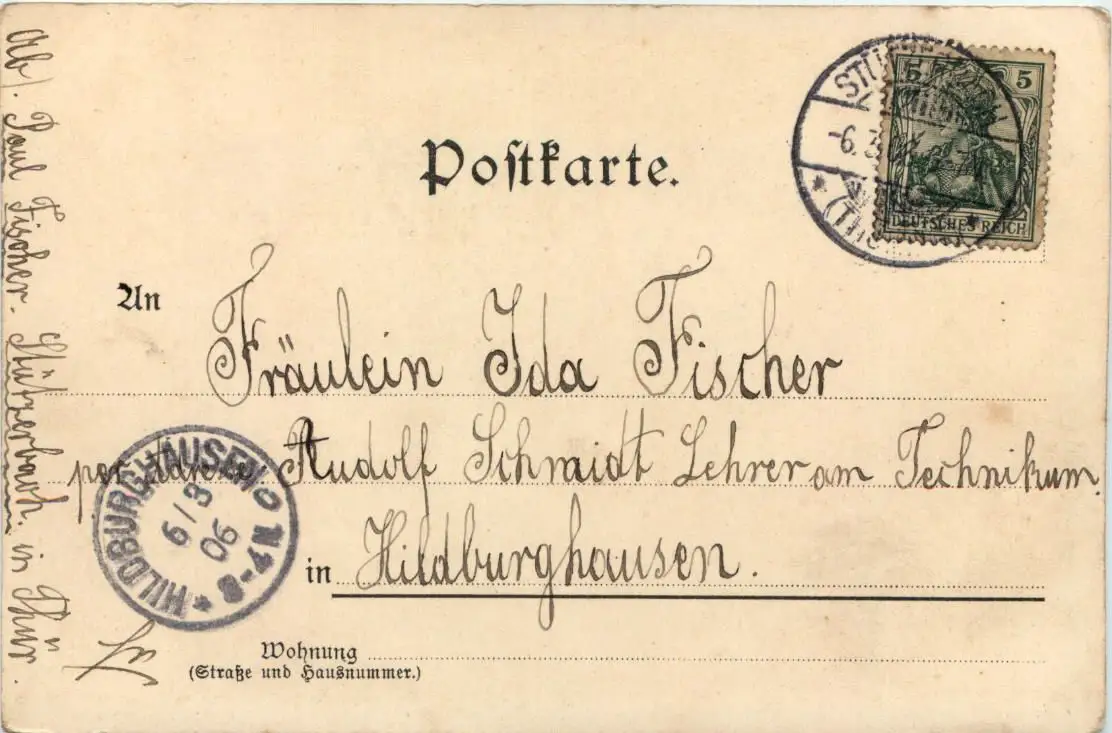 Postkarte.
5 5
DEUTSCHES REICH
-6.3.06
An
Fräulein Ida Fischer
per Rudolf Schmidt Lehrer am Technikum.
in Hildburghausen.
Wohnung
(Straße und Hausnummer.)
HILDBURGHAUSEN
6/3
06
3-4N
Ab/. Paul Fischer. Stützerbach. in Thür.